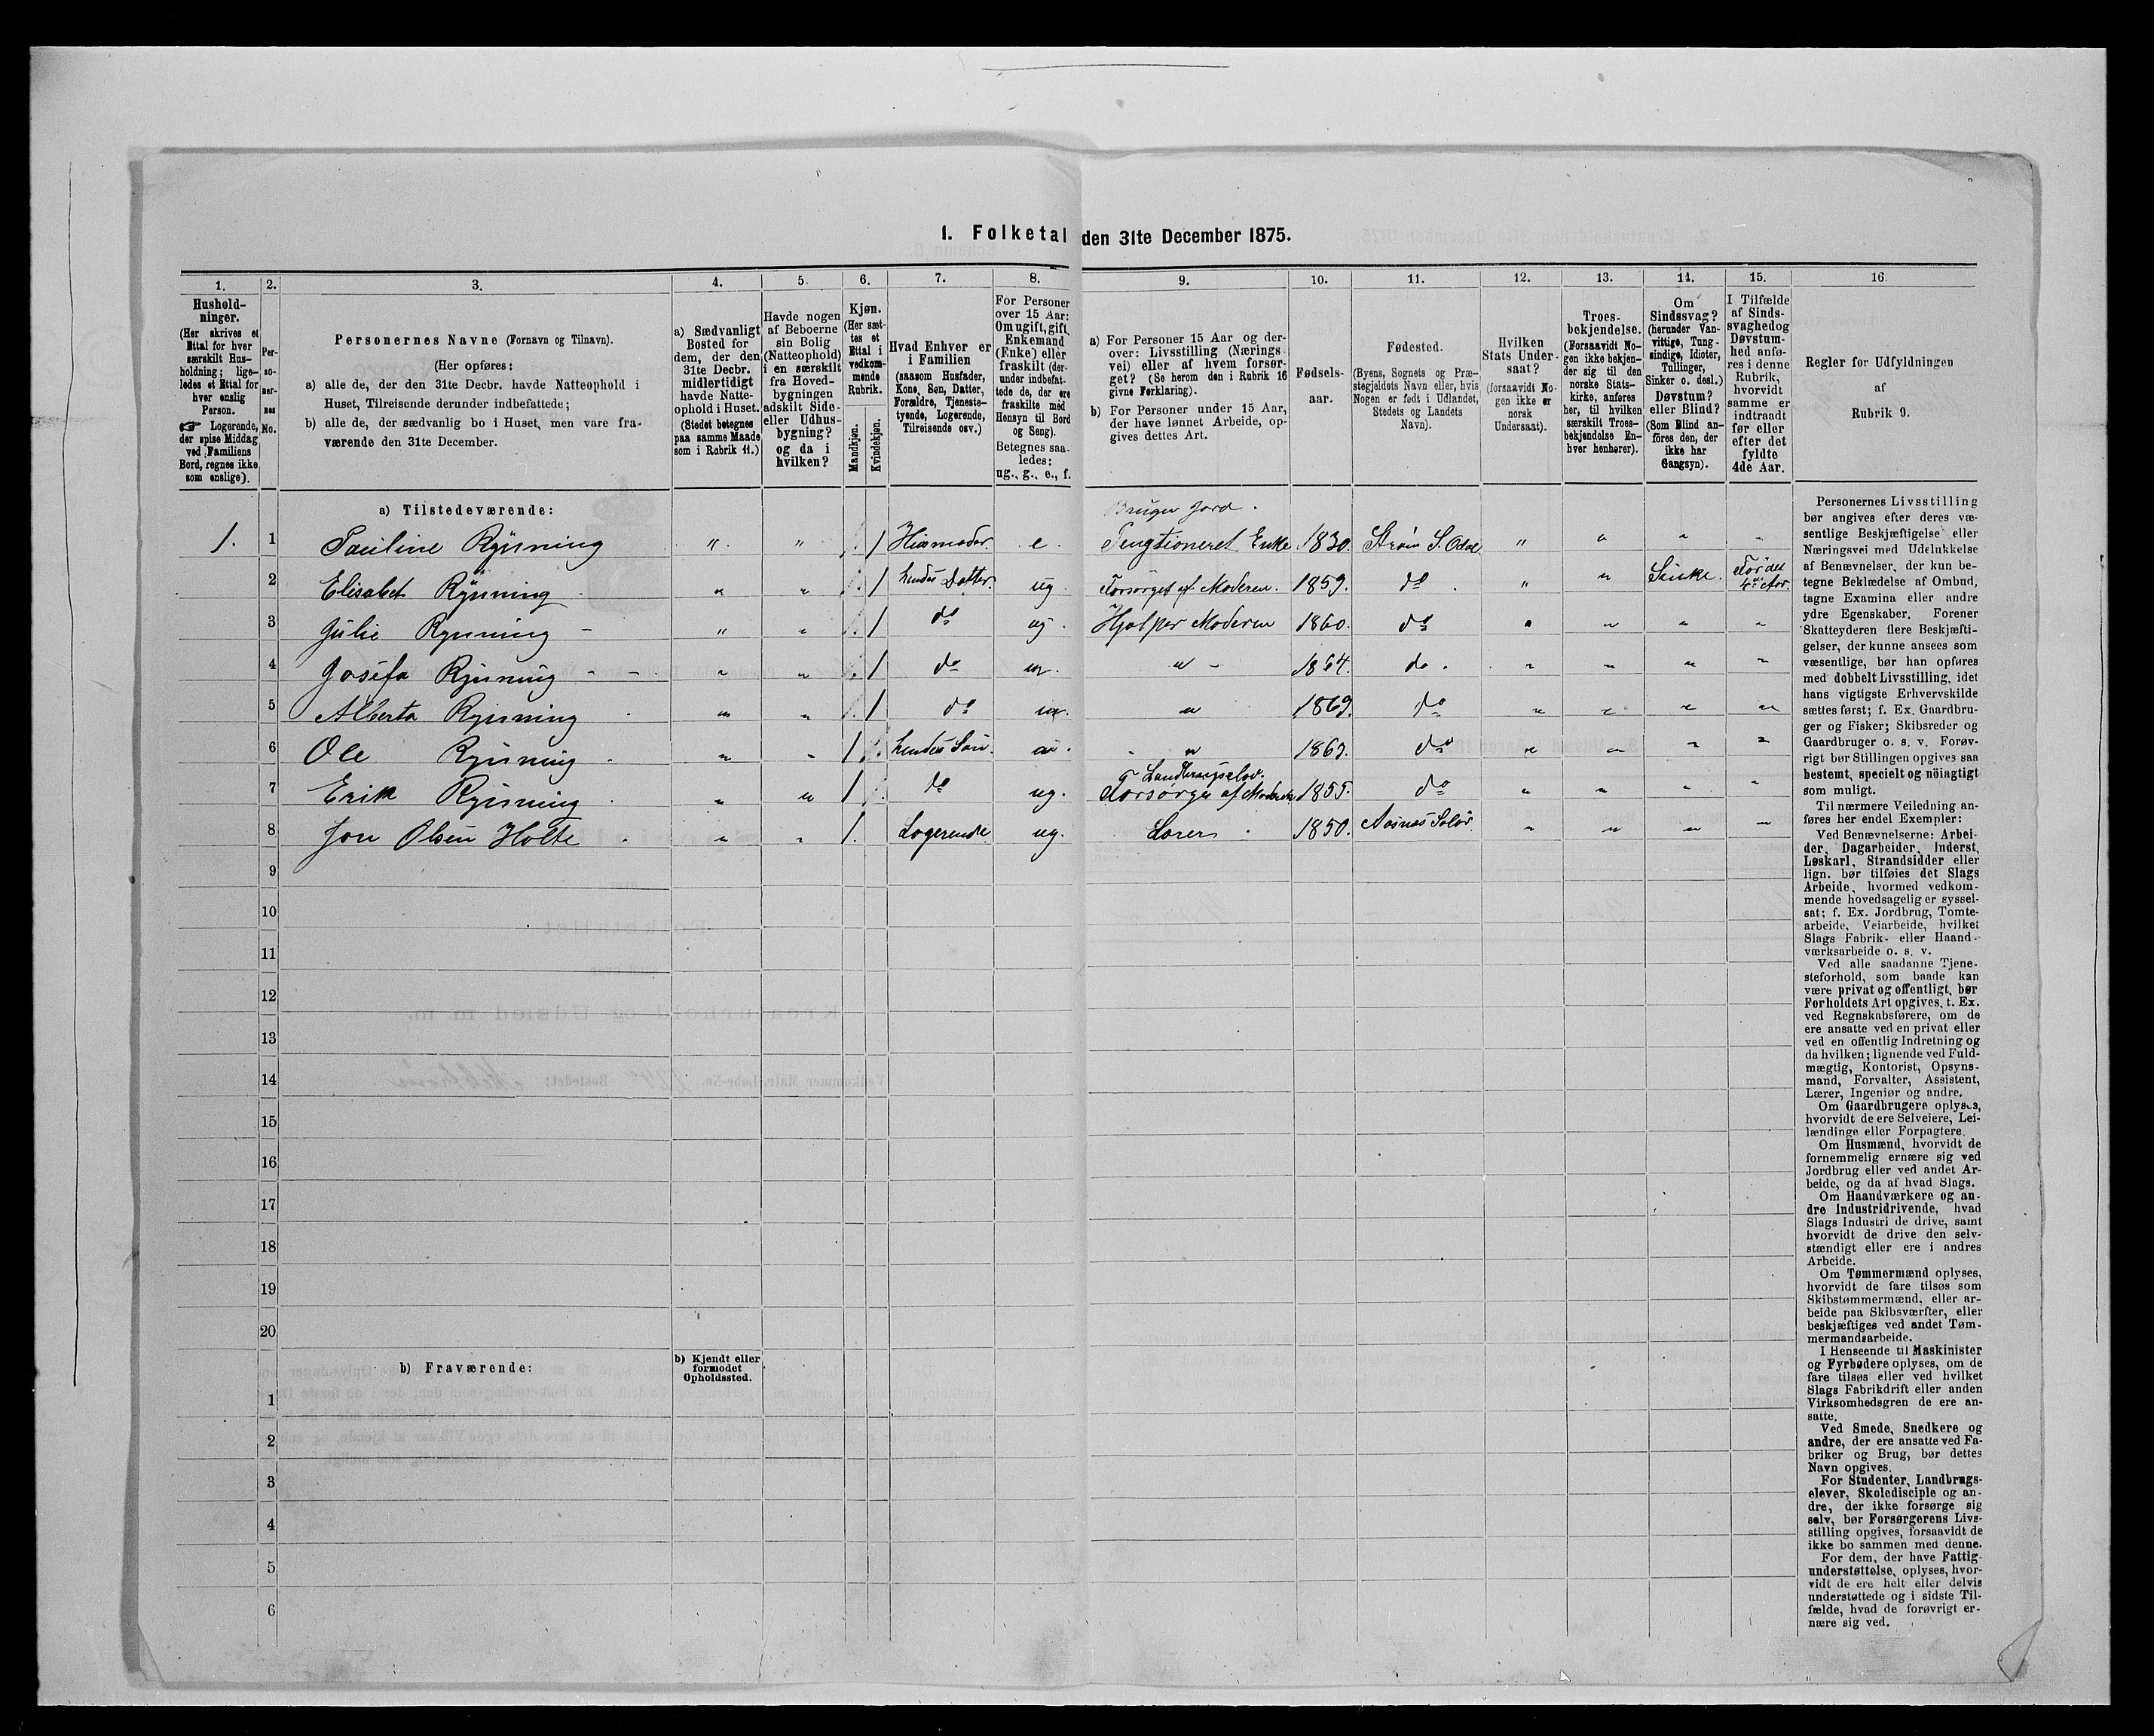 1. Folketal den 31te December 1875.
1.
Hushold-
ninger.
(Her skrives et
Ettal for hver
særskilt Hus-
holdning; lige-
ledes et Ettal for
hver enslig
Person.
☞ Logerende,
der spise Middag
ved Familiens
Bord, regnes ikke
som enslige).
2.
Per-
so-
ner-
nes
No.
3.
Personernes Navne (Fornavn og Tilnavn).
(Her opføres:
a) alle de, der den 31te Decbr. havde Natteophold i
Huset, Tilreisende derunder indbefattede;
b) alle de, der sædvanlig bo i Huset, men vare fra-
værende den 31te December.
4.
a) Sædvanligt
Bosted for
dem, der den
31te Decbr.
midlertidigt
havde Natte-
ophold i Huset.
(Stedet betegnes
paa samme Maade
som i Rubrik 11.)
5.
Havde nogen
af Beboerne
sin Bolig
(Natteophold)
i en særskilt
fra Hoved-
bygningen
adskilt Side-
eller Udhus-
bygning?
og da i
hvilken?
6.
Kjøn.
(Her sæt-
tes et
Ettal i
vedkom-
mende
Rubrik.
Mandkjøn.
Kvindekjøn.
7.
Hvad Enhver er
i Familien
(saasom Husfader,
Kone, Søn, Datter,
Forældre, Tjeneste-
tyende, Logerende,
Tilreisende osv.)
8.
For Personer
over 15 Aar:
Om ugift, gift,
Enkemand
(Enke) eller
fraskilt (der-
under indbefat-
tede de, der ere
fraskilte med
Hensyn til Bord
og Seng).
Betegnes saa-
ledes:
ug., g., e., f.
9.
a) For Personer 15 Aar og der-
over: Livsstilling (Nærings-
vei) eller af hvem forsør-
get? (Se herom den i Rubrik 16
givne Forklaring).
b) For Personer under 15 Aar,
der have lønnet Arbeide, op-
gives dettes Art.
10.
Fødsels-
aar.
11.
Fødested.
(Byens, Sognets og Præ-
stegjeldets Navn eller, hvis
Nogen er født i Udlandet,
Stedets og Landets
Navn).
12.
Hvilken
Stats Under-
saat?
(forsaavidt No-
gen ikke er
norsk
Undersaat).
13.
Troes-
bekjendelse.
(Forsaavidt No-
gen ikke bekjen-
der sig til den
norske Stats-
kirke, anføres
her, til hvilken
særskilt Troes-
bekjendelse En-
hver henhører).
14.
Om
Sindssvag?
(herunder Van-
vittige, Tung-
sindige, Idioter,
Tullinger,
Sinker o. desl.)
Døvstum?
eller Blind?
(Som Blind an-
føres den, der
ikke har
Gangsyn).
15.
I Tilfælde
af Sinds-
svaghed og
Døvstum-
hed anfø-
res i denne
Rubrik,
hvorvidt
samme er
indtraadt
før eller
efter det
fyldte
4de Aar.
16.
Regler for Udfyldningen
af
Rubrik 9.
a) Tilstedeværende:
Bruger Jord.
1. 1 Pauline Rynning " " 1 Husmoder. e. Pengtioneret Enke 1830. Strøm S. Odal " " " "
2 Elisabet Rynning " " 1 hendes Datter ug. Forsørges af Moderen. 1859. do " " Sinke. Før det 4de Aar.
3 Julie Rynning " " 1 do ug. Hjælper Moderen 1860. do " " " "
4 Josefa Rynning " " 1 do " " 1864. do " " " "
5 Alberta Rynning " " 1 do " " 1869. do " " " "
6 Ole Rynning " " 1 hendes Søn " " 1869. do " " " "
Landbrugselev.
7 Erik Rynning " " 1 do ug. Forsørges af Moderen 1855. do " " " "
8 Jon Olsen Holte " " 1. Logerende ug. Lærer 1850. Aasnæs Solør. " " " "
9
10
11
12
13
14
15
16
17
18
19
20
b) Fraværende:
b) Kjendt eller
formodet
Opholdssted.
1
2
3
4
5
6
Personernes Livsstilling
bør angives efter deres væ-
sentlige Beskjæftigelse eller
Næringsvei med Udelukkelse
af Benævnelser, der kun be-
tegne Beklædelse af Ombud,
tagne Examina eller andre
ydre Egenskaber. Forener
Skatteyderen flere Beskjæfti-
gelser, der kunne ansees som
væsentlige, bør han opføres
med dobbelt Livsstilling, idet
hans vigtigste Erhvervskilde
sættes først; f. Ex. Gaardbru-
ger og Fisker; Skibsreder og
Gaardbruger o. s. v. Forøv-
rigt bør Stillingen opgives saa
bestemt, specielt og nöiagtigt
som muligt.
Til nærmere Veiledning an-
føres her endel Exempler:
Ved Benævnelserne: Arbei-
der, Dagarbeider, Inderst,
Løskarl, Strandsidder eller
lign. bør tilføies det Slags
Arbeide, hvormed vedkom-
mende hovedsagelig er syssel-
sat; f. Ex. Jordbrug, Tomte-
arbeide, Veiarbeide, hvilket
Slags Fabrik- eller Haand-
værksarbeide o. s. v.
Ved alle saadanne Tjene-
steforhold, som baade kan
være privat og offentligt, bør
Forholdets Art opgives, t. Ex.
ved Regnskabsførere, om de
ere ansatte ved en privat eller
ved en offentlig Indretning og
da hvilken; lignende ved Fuld-
mægtig, Kontorist, Opsyns-
mand, Forvalter, Assistent,
Lærer, Ingeniør og andre.
Om Gaardbrugere oplyses,
hvorvidt de ere Selveiere, Lei-
lændinge eller Forpagtere.
Om Husmænd, hvorvidt de
fornemmelig ernære sig ved
Jordbrug eller ved andet Ar-
beide, og da af hvad Slags.
Om Haandværkere og an-
dre Industridrivende, hvad
Slags Industri de drive, samt
hvorvidt de drive den selv-
stændigt eller ere i andres
Arbeide.
Om Tømmermænd oplyses,
hvorvidt de fare tilsøs som
Skibstømmermænd, eller ar-
beide paa Skibsværfter, eller
beskjæftiges ved andet Tøm-
mermandsarbeide.
I Henseende til Maskinister
og Fyrbødere oplyses, om de
fare tilsøs eller ved hvilket
Slags Fabrikdrift eller anden
Virksomhedsgren de ere an-
satte.
Ved Smede, Snedkere og
andre, der ere ansatte ved Fa-
briker og Brug, bør dettes
Navn opgives.
For Studenter, Landbrugs-
elever, Skoledisciple og an-
dre, der ikke forsørge sig
selv, bør Forsørgerens Livs-
stilling opgives, forsaavidt de
ikke bo sammen med denne.
For dem, der have Fattig-
understøttelse, oplyses, hvor-
vidt de ere helt eller delvis
understøttede og i sidste Til-
fælde, hvad de forøvrigt er-
nære sig ved.